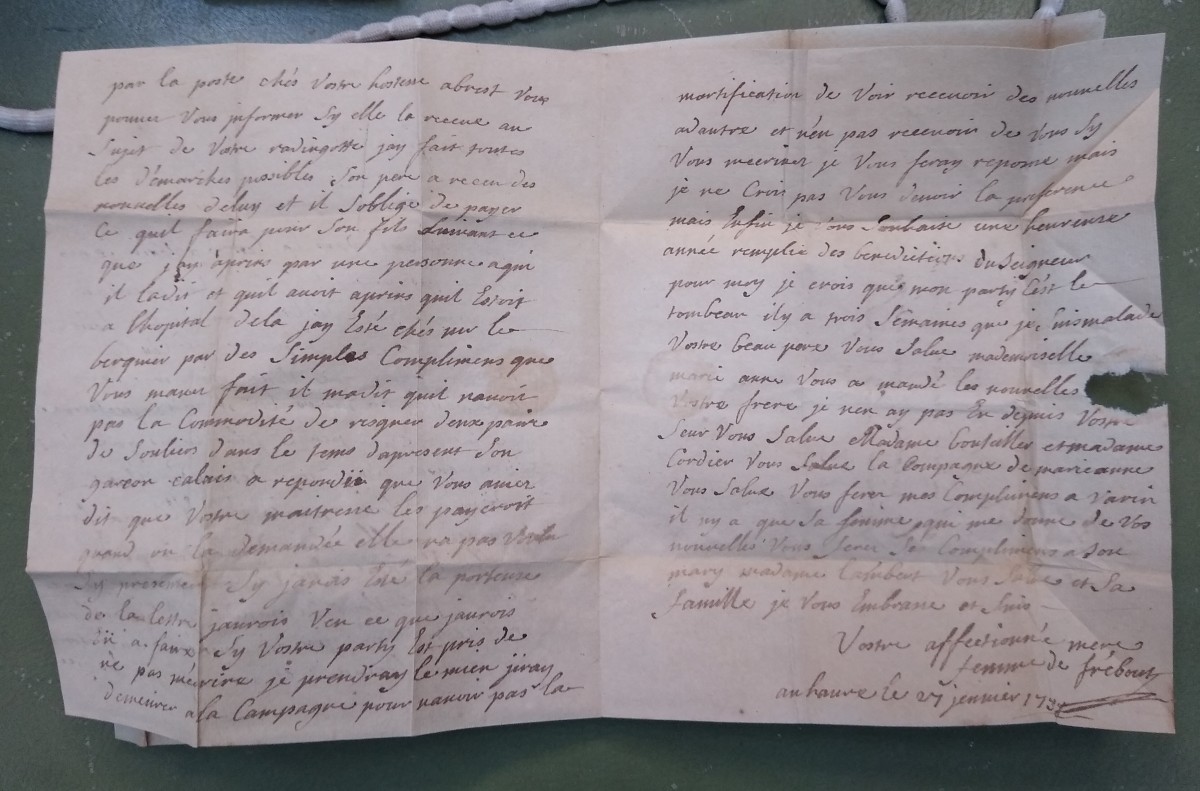 par la poste chés Vostre hostesse abrest Vous
pouues Vous jnformer Sy elle la receue au
Sujet de Vostre radingotte jay fait toutes
les démarches possibles Son pere a receu des
nouuelles deluy et il Soblige de payer
Ce quil faira pour Son fils Suiuant ce
que jay apries par une personne aqui
il ladit et quil auoit apries quil Estoit
a lhopital dela jay Esté chés mr le
berquier par des Simples Complimens que
Vous mauez fait il madit quil nauoit
pas la Commodité de risquer deux paire
de Souliers dans le tems dapresent Son
garcon calais a repondü que Vous auiez
dit que Vostre maitresse les payeroit
quand on la demandée elle na pas Voulu
Sy presenter Sy jauois Esté la porteuse
de la lettre jaurois Veu ce que jaurois
eü a faire Sy Vostre party Est pris de
ne pas mécrire je prendray le mien jiray
demeurer ala Campagne pour nauoir pas la
mortification de Voir receuoir des nouuelles
adautre et nen pas receuoir de Vous Sy
Vous mecriuez je Vous feray reponse mais
je ne Crois pas Vous deuoir la preference
mais Enfin je Vous Souhaite une heureuse
année remplie des benedictions du Seigneur
pour moy je crois que mon party Cest le
tombeau il y a trois Semaines que je suis malade
Vostre beau pere Vous Salue mademoiselle
marie anne Vous a mandé les nouuelles
Vostre frere je nen ay pas Eu depuis Vostre
Seur Vous Salue Madame bouteiller et madame
Cordier Vous Salue la Compagne de marie anne
Vous Salue Vous ferez mes Complimens a Varin
il ny a que Sa femme qui me donne de Vos
nouuelles Vous ferez Ses Complimens a Son
mary madame lambert Vous Salue et Sa
famille je Vous Embrasse et Suis
Vostre affectionnée mere
femme de frébourg
au haure le 27 jenuier